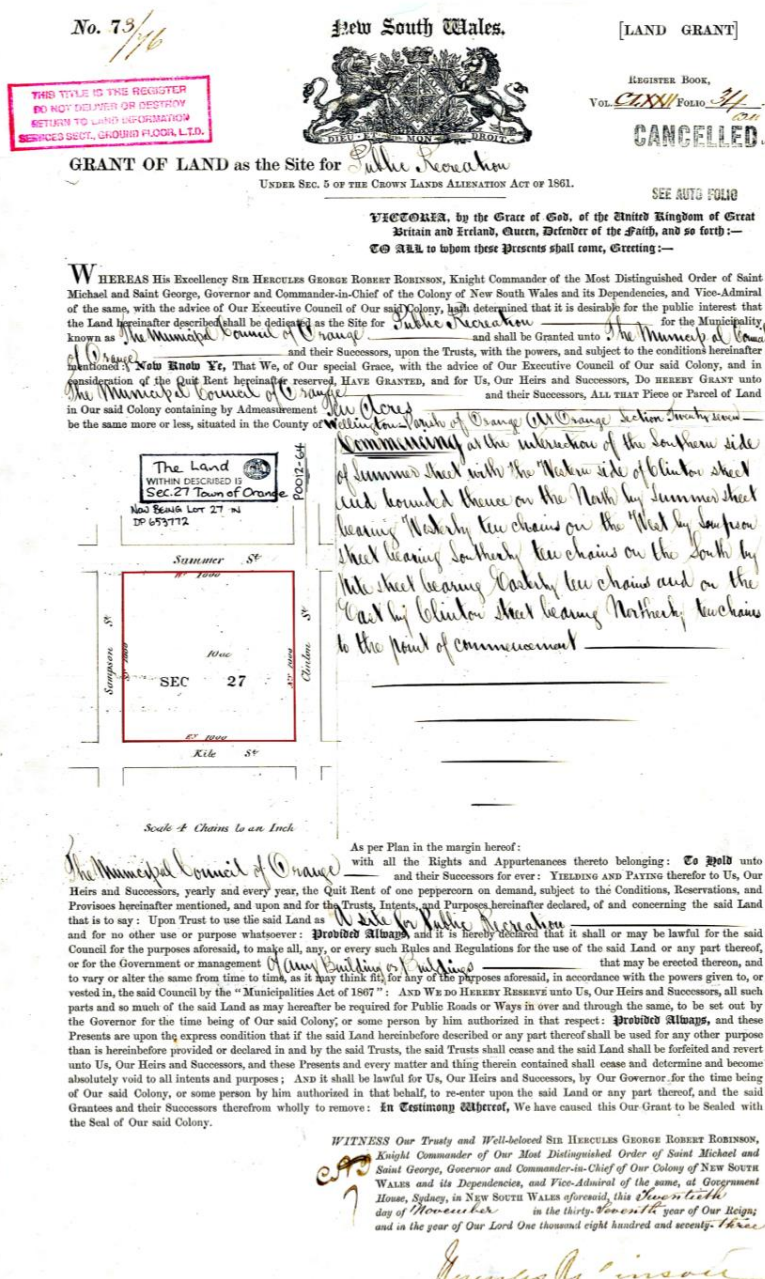 No. 73/76
New South Wales.
[LAND GRANT]
THIS TITLE IS THE REGISTER
DO NOT DELIVER OR DESTROY
RETURN TO LAND INFORMATION
SERVICES SECT., GROUND FLOOR, L.T.O.
REGISTER BOOK,
VOL. CLXXII FOLIO 34
CANCELLED
DIEU ET MON DROIT
GRANT OF LAND as the Site for Public Recreation
UNDER SEC. 5 OF THE CROWN LANDS ALIENATION ACT OF 1861.
SEE AUTO FOLIO
VICTORIA, by the Grace of God, of the United Kingdom of Great
Britain and Ireland, Queen, Defender of the Faith, and so forth:—
TO ALL to whom these Presents shall come, Greeting:—
WHEREAS His Excellency SIR HERCULES GEORGE ROBERT ROBINSON, Knight Commander of the Most Distinguished Order of Saint
Michael and Saint George, Governor and Commander-in-Chief of the Colony of New South Wales and its Dependencies, and Vice-Admiral
of the same, with the advice of Our Executive Council of Our said Colony, hath determined that it is desirable for the public interest that
the Land hereinafter described shall be dedicated as the Site for Public Recreation for the Municipality
known as The Municipal Council of Orange and shall be Granted unto The Municipal Council
of Orange and their Successors, upon the Trusts, with the powers, and subject to the conditions hereinafter
mentioned: Now Know Ye, That We, of Our special Grace, with the advice of Our Executive Council of Our said Colony, and in
consideration of the Quit Rent hereinafter reserved, HAVE GRANTED, and for Us, Our Heirs and Successors, DO HEREBY GRANT unto
The Municipal Council of Orange and their Successors, ALL THAT Piece or Parcel of Land
in Our said Colony containing by Admeasurement Ten Acres
be the same more or less, situated in the County of Wellington Parish of Orange At Orange Section Twenty seven
Commencing at the intersection of the Southern side
of Summer street with the Western side of Clinton street
and bounded thence on the North by Summer street
bearing Westerly ten chains on the West by Sampson
street bearing Southerly ten chains on the South by
Kite street bearing Easterly ten chains and on the
East by Clinton street bearing Northerly ten chains
to the point of commencement
The Land
WITHIN DESCRIBED IS
Sec.27 Town of Orange
NOW BEING LOT 27 IN
DP 653772
P0012-64
Summer St
Wt 1000
Sampson St
Sth 1000
10ac
SEC 27
Nth 1000
Clinton St
Et 1000
Kite St
Scale 4 Chains to an Inch
As per Plan in the margin hereof:
with all the Rights and Appurtenances thereto belonging: To Hold unto
The Municipal Council of Orange and their Successors for ever: YIELDING AND PAYING therefor to Us, Our
Heirs and Successors, yearly and every year, the Quit Rent of one peppercorn on demand, subject to the Conditions, Reservations, and
Provisoes hereinafter mentioned, and upon and for the Trusts, Intents, and Purposes hereinafter declared, of and concerning the said Land
that is to say: Upon Trust to use the said Land as A site for Public Recreation
and for no other use or purpose whatsoever: Provided Always, and it is hereby declared that it shall or may be lawful for the said
Council for the purposes aforesaid, to make all, any, or every such Rules and Regulations for the use of the said Land or any part thereof,
or for the Government or management of any Building or Buildings that may be erected thereon, and
to vary or alter the same from time to time, as it may think fit, for any of the purposes aforesaid, in accordance with the powers given to, or
vested in, the said Council by the "Municipalities Act of 1867": AND WE DO HEREBY RESERVE unto Us, Our Heirs and Successors, all such
parts and so much of the said Land as may hereafter be required for Public Roads or Ways in over and through the same, to be set out by
the Governor for the time being of Our said Colony, or some person by him authorized in that respect: Provided Always, and these
Presents are upon the express condition that if the said Land hereinbefore described or any part thereof shall be used for any other purpose
than is hereinbefore provided or declared in and by the said Trusts, the said Trusts shall cease and the said Land shall be forfeited and revert
unto Us, Our Heirs and Successors, and these Presents and every matter and thing therein contained shall cease and determine and become
absolutely void to all intents and purposes; AND it shall be lawful for Us, Our Heirs and Successors, by Our Governor for the time being
of Our said Colony, or some person by him authorized in that behalf, to re-enter upon the said Land or any part thereof, and the said
Grantees and their Successors therefrom wholly to remove: In Testimony Whereof, We have caused this Our Grant to be Sealed with
the Seal of Our said Colony.
WITNESS Our Trusty and Well-beloved SIR HERCULES GEORGE ROBERT ROBINSON,
Knight Commander of Our Most Distinguished Order of Saint Michael and
Saint George, Governor and Commander-in-Chief of Our Colony of NEW SOUTH
WALES and its Dependencies, and Vice-Admiral of the same, at Government
House, Sydney, in NEW SOUTH WALES aforesaid, this Twentieth
day of November in the thirty-seventh year of Our Reign;
and in the year of Our Lord One thousand eight hundred and seventy-three
Hercules Robinson